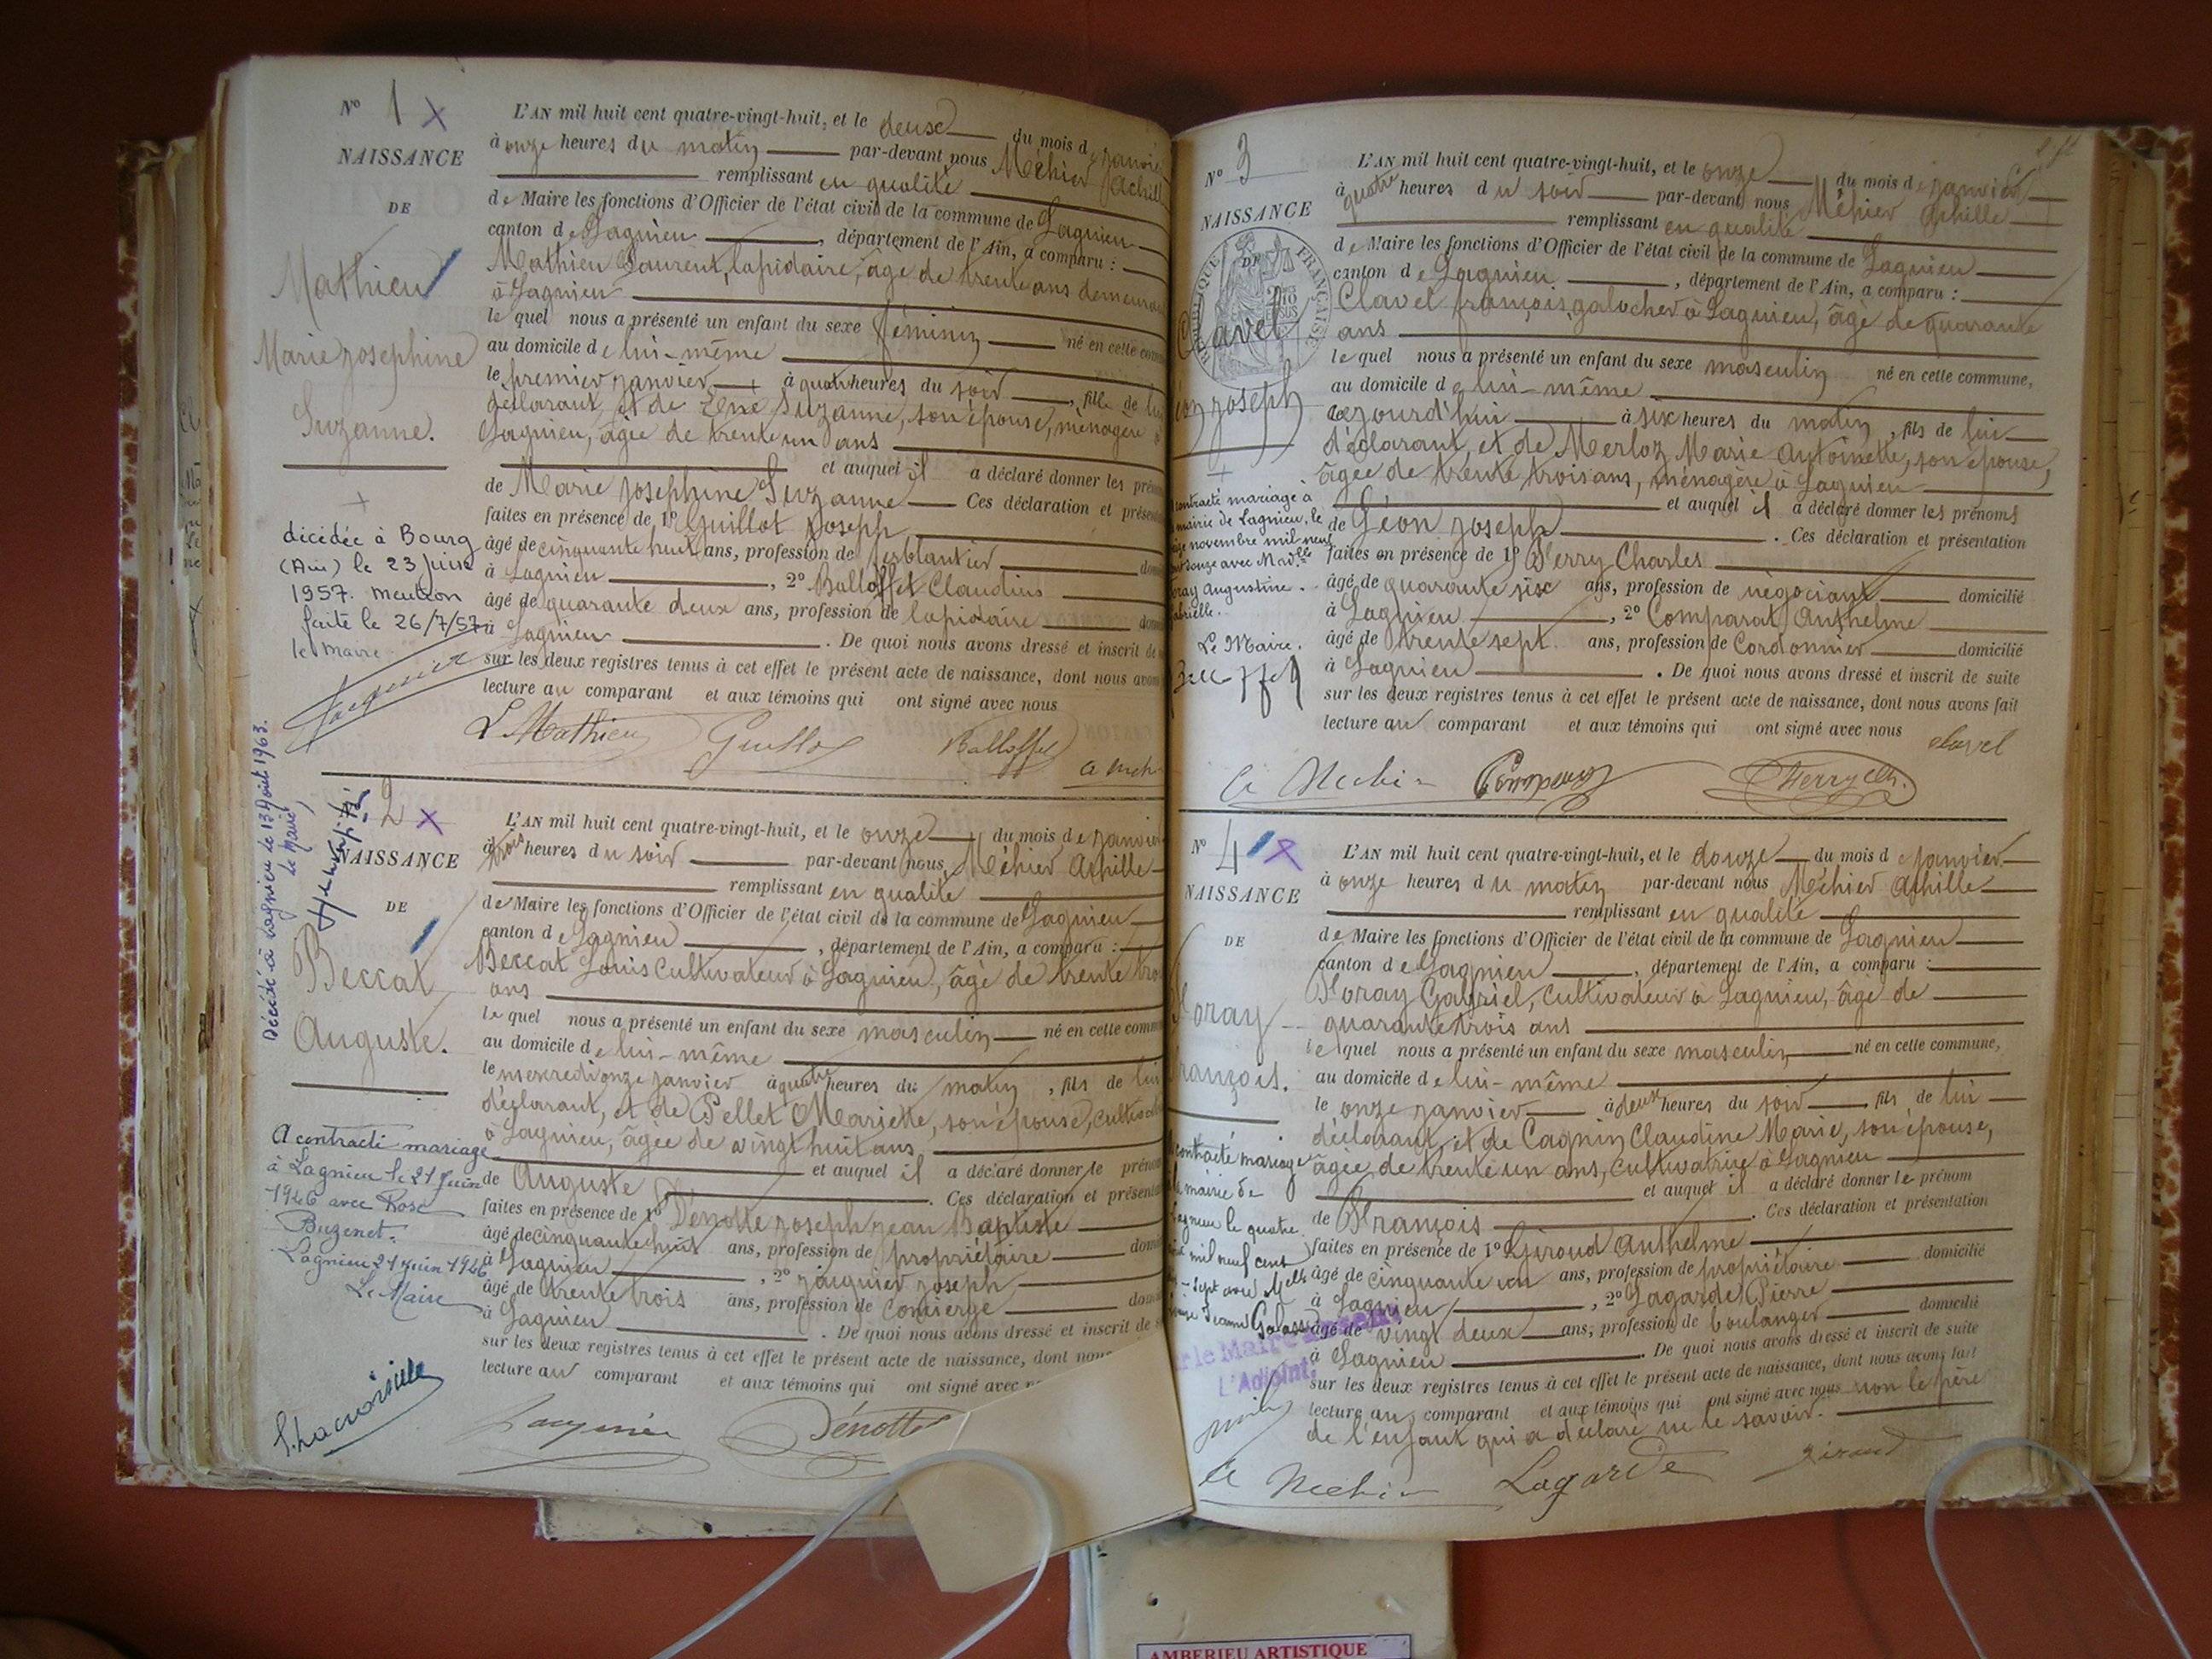 N° 1
NAISSANCE
DE
Mathieu
Marie Joséphine
Suzanne.
décédée à Bourg
(Ain) le 23 juin
1957. mention
faite le 26/7/57
le Maire
Jacquier
L'AN mil huit cent quatre-vingt-huit, et le deux du mois de janvier
à onze heures du matin par-devant nous Méhier Achille
remplissant en qualité
de Maire les fonctions d'Officier de l'état civil de la commune de Lagnieu
canton de Lagnieu, département de l'Ain, a comparu :
Mathieu Laurent, lapidaire, âgé de trente ans demeurant
à Lagnieu
le quel nous a présenté un enfant du sexe féminin né en cette com
au domicile de lui-même
le premier janvier à quatre heures du soir, fille de lui
déclarant, et de Suzanne, son épouse, ménagère à
Lagnieu, âgée de trente un ans
et auquel il a déclaré donner les prénoms
de Marie Joséphine Suzanne Ces déclaration et présen
faites en présence de 1° Guillot Joseph
âgé de cinquante huit ans, profession de ferblantier dom
à Lagnieu, 2° Balloffet Claudius
âgé de quarante deux ans, profession de lapidaire dom
à Lagnieu. De quoi nous avons dressé et inscrit de
sur les deux registres tenus à cet effet le présent acte de naissance, dont nous avons
lecture au comparant et aux témoins qui ont signé avec nous
L. Mathieu Guillot Balloffet
a meh
Décédé à Lagnieu le 13 Août 1963.
Le Maire,
2
NAISSANCE
DE
Beccat
Auguste.
A contracté mariage
à Lagnieu le 21 Juin
1926 avec Rose
Buzenet.
Lagnieu 21 juin 1926
Le Maire
L'AN mil huit cent quatre-vingt-huit, et le onze du mois de janvier
à trois heures du soir par-devant nous Méhier Achille
remplissant en qualité
de Maire les fonctions d'Officier de l'état civil de la commune de Lagnieu
canton de Lagnieu, département de l'Ain, a comparu :
Beccat Louis cultivateur à Lagnieu, âgé de trente trois
ans
le quel nous a présenté un enfant du sexe masculin né en cette comm
au domicile de lui-même
le mercredi onze janvier à quatre heures du matin, fils de lui
déclarant, et de Pellet Mariette, son épouse, cultiva
à Lagnieu, âgée de vingt huit ans
et auquel il a déclaré donner le prénom
de Auguste. Ces déclaration et présenta
faites en présence de 1° Dénotte Joseph Jean Baptiste
âgé de cinquante huit ans, profession de propriétaire domi
à Lagnieu, 2° Jacquier Joseph
âgé de trente trois ans, profession de concierge domi
à Lagnieu. De quoi nous avons dressé et inscrit de s
sur les deux registres tenus à cet effet le présent acte de naissance, dont nous
lecture au comparant et aux témoins qui ont signé avec
Jacquier Dénotte
N° 3
NAISSANCE
DE
RÉPUBLIQUE FRANÇAISE
Clavel
Joseph
contracté mariage à
mairie de Lagnieu, le
novembre mil neuf
cent douze avec Mad.lle
oray Augustine
Le Maire.
L'AN mil huit cent quatre-vingt-huit, et le onze du mois de janvier
à quatre heures du soir par-devant nous Méhier Achille
remplissant en qualité
de Maire les fonctions d'Officier de l'état civil de la commune de Lagnieu
canton de Lagnieu, département de l'Ain, a comparu :
Clavel François, galocher à Lagnieu, âgé de quarante
ans
le quel nous a présenté un enfant du sexe masculin né en cette commune,
au domicile de lui-même
cejourd'hui à six heures du matin, fils de lui
déclarant, et de Merloz Marie Antoinette, son épouse,
âgée de trente trois ans, ménagère à Lagnieu
et auquel il a déclaré donner les prénoms
de Léon Joseph. Ces déclaration et présentation
faites en présence de 1° Ferry Charles
âgé de quarante six ans, profession de négociant domicilié
à Lagnieu, 2° Comparat Anthelme
âgé de trente sept. ans, profession de Cordonnier domicilié
à Lagnieu. De quoi nous avons dressé et inscrit de suite
sur les deux registres tenus à cet effet le présent acte de naissance, dont nous avons fait
lecture au comparant et aux témoins qui ont signé avec nous
clavel
a Mehier Comparat Ferry Ch.
N° 4
NAISSANCE
DE
Floray
rançois.
contracté mariage
mairie de
Lagnieu le quatre
mil neuf cent
sept avec Melle
Jeanne
le Maire
L'Adjoint,
L'AN mil huit cent quatre-vingt-huit, et le douze du mois de janvier
à onze heures du matin par-devant nous Méhier Achille
remplissant en qualité
de Maire les fonctions d'Officier de l'état civil de la commune de Lagnieu
canton de Lagnieu, département de l'Ain, a comparu :
Floray Gabriel, cultivateur à Lagnieu, âgé de
quarante trois ans
le quel nous a présenté un enfant du sexe masculin né en cette commune,
au domicile de lui-même
le onze janvier à deux heures du soir fils de lui
déclarant, et de Cagnin Claudine Marie, son épouse,
âgée de trente un ans, cultivatrice à Lagnieu
et auquel il a déclaré donner le prénom
de François. Ces déclaration et présentation
faites en présence de 1° Giroud Anthelme
âgé de cinquante un ans, profession de propriétaire domicilié
à Lagnieu, 2° Lagarde Pierre
âgé de vingt deux ans, profession de boulanger domicilié
à Lagnieu. De quoi nous avons dressé et inscrit de suite
sur les deux registres tenus à cet effet le présent acte de naissance, dont nous avons fait
lecture au comparant et aux témoins qui ont signé avec nous non le père
de l'enfant qui a déclaré ne le savoir.
a Mehier Lagarde Giroud
AMBERIEU ARTISTIQUE